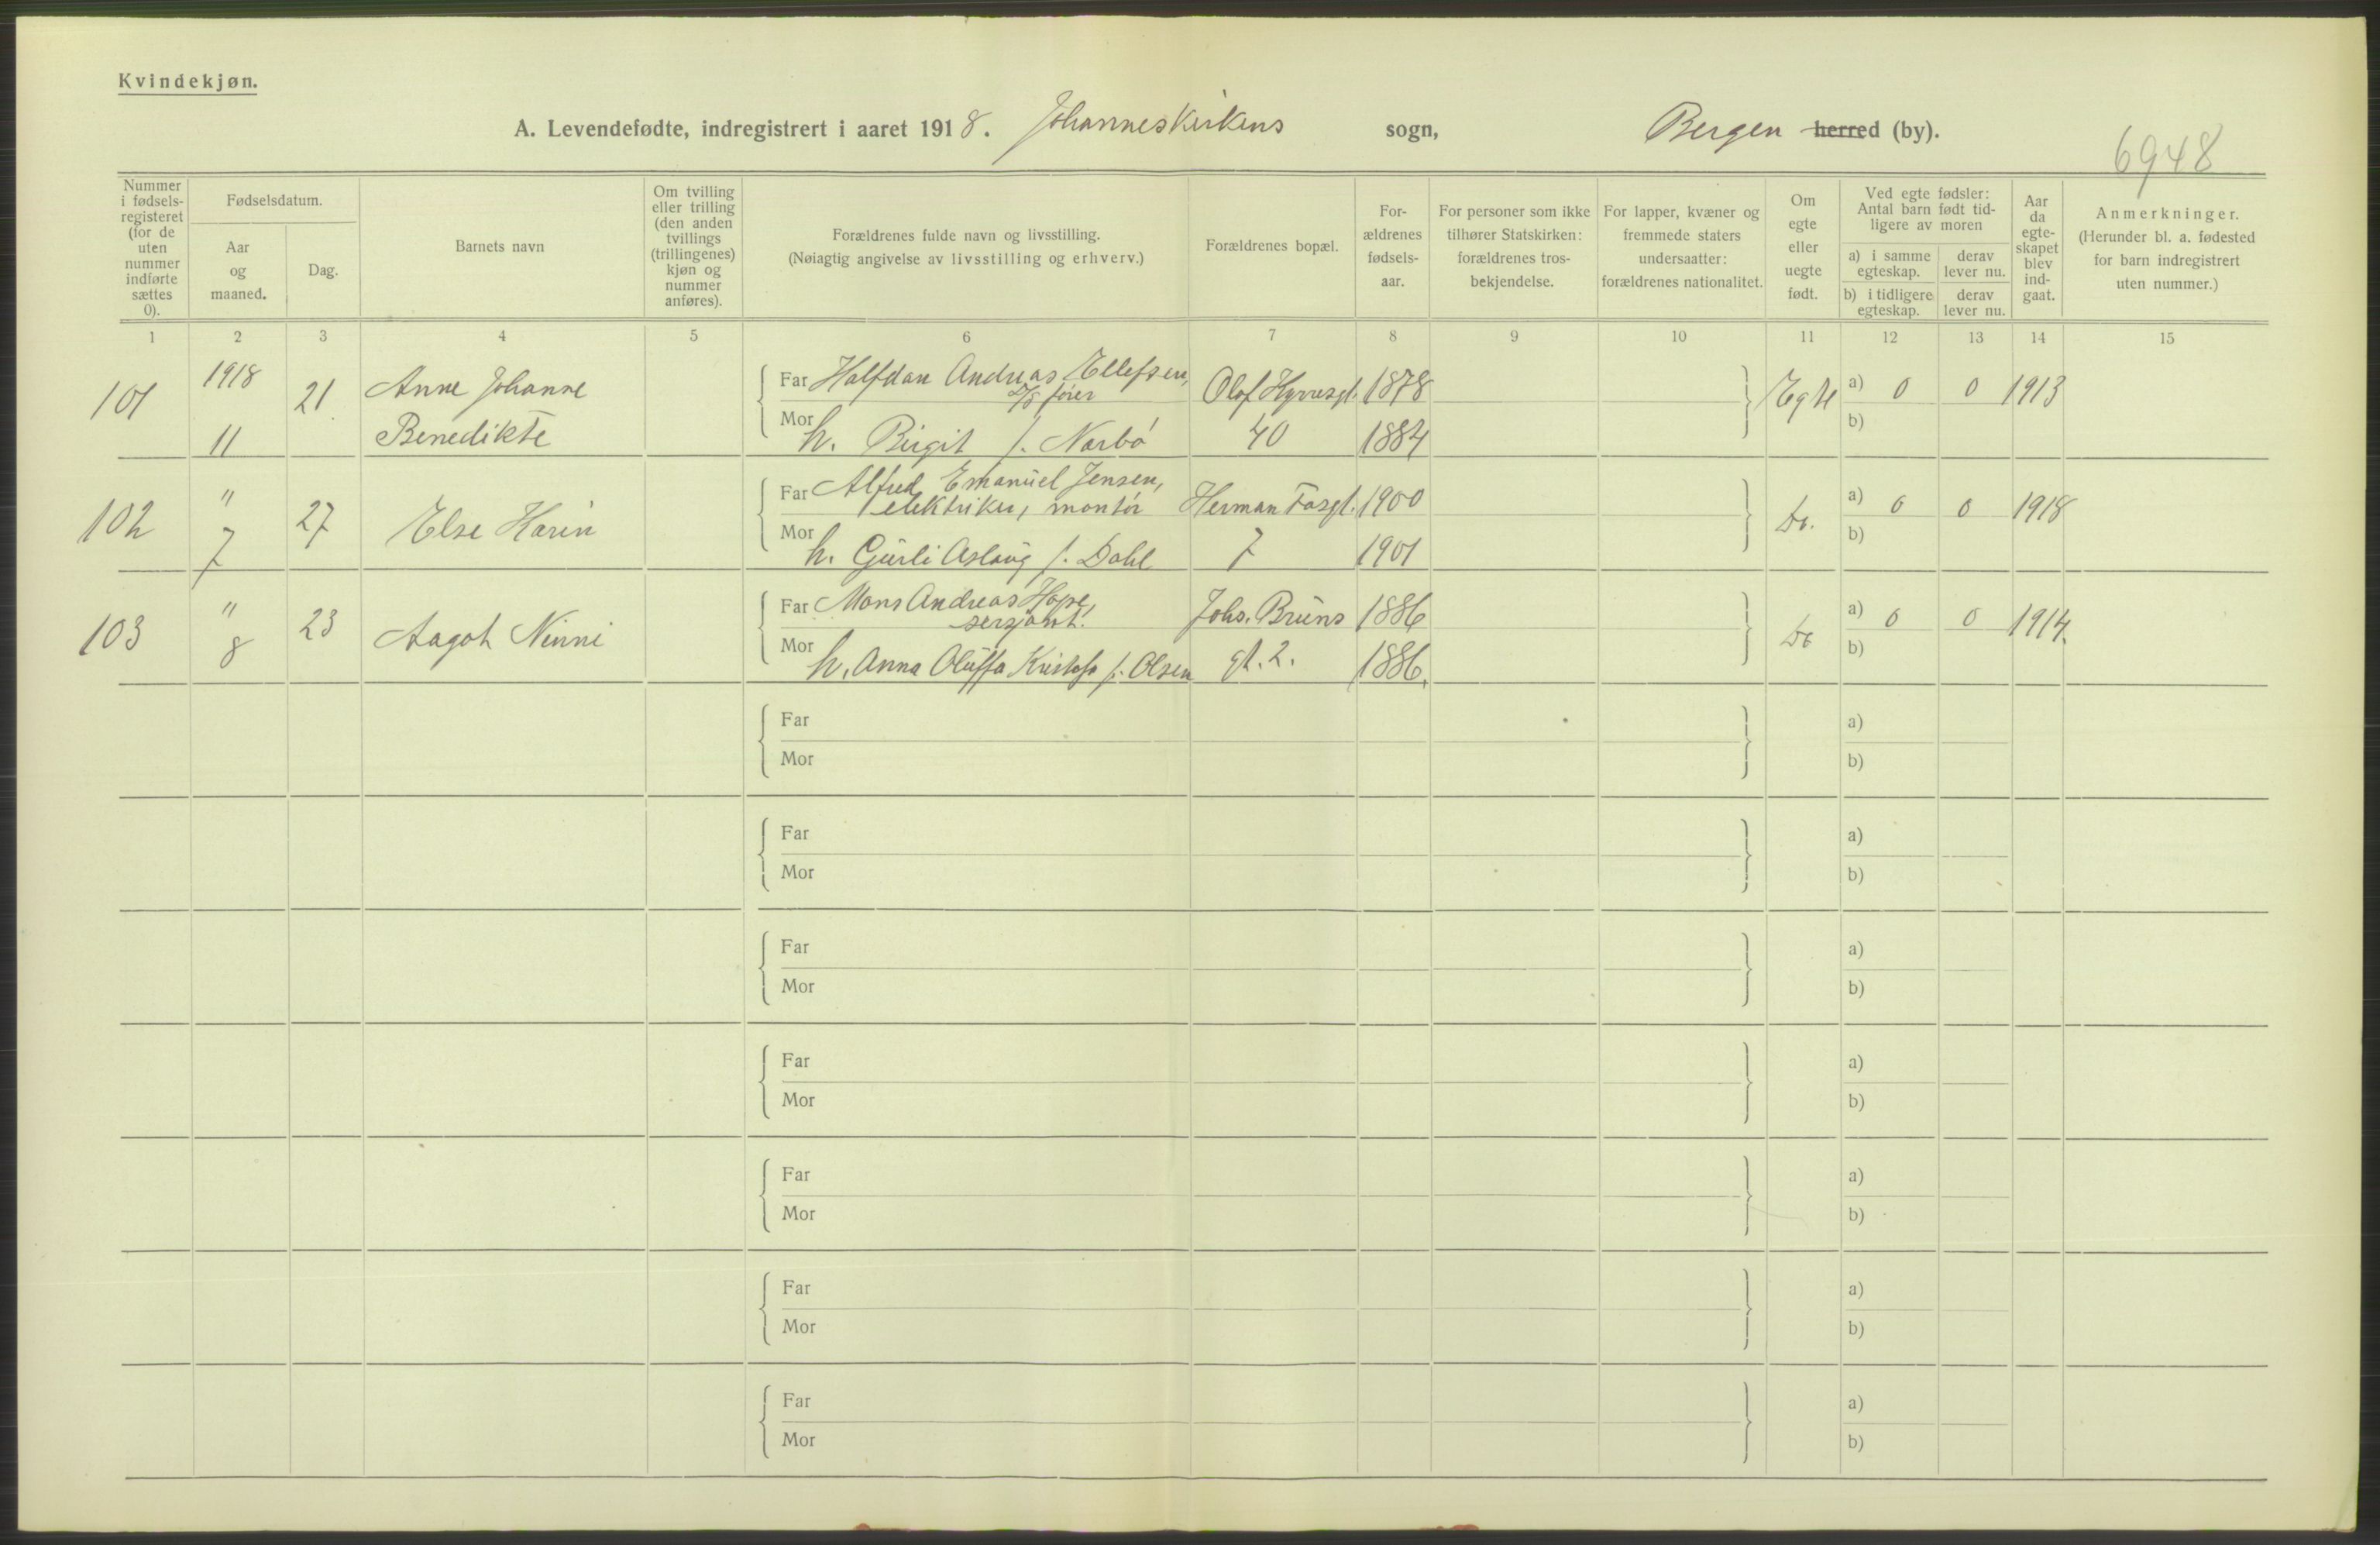 Kvindekjøn.
A. Levendefødte, indregistrert i aaret 1918. Johanneskirkens sogn, Bergen herred (by).
6948
Nummer i fødsels-registeret (for de uten nummer indførte sættes 0).
Fødselsdatum.
Aar og maaned.
Dag.
Barnets navn
Om tvilling eller trilling (den anden tvillings (trillingenes) kjøn og nummer anføres).
Forældrenes fulde navn og livsstilling.
(Nøiagtig angivelse av livsstilling og erhverv.)
Forældrenes bopæl.
For-ældrenes fødsels-aar.
For personer som ikke tilhører Statskirken: forældrenes tros-bekjendelse.
For lapper, kvæner og fremmede staters undersaatter: forældrenes nationalitet.
Om egte eller uegte født.
Ved egte fødsler: Antal barn født tid-ligere av moren
a) i samme egteskap.
derav lever nu.
b) i tidligere egteskap.
derav lever nu.
Aar da egte-skapet blev ind-gaat.
Anmerkninger.
(Herunder bl. a. fødested for barn indregistrert uten nummer.)
1 2 3 4 5 6 7 8 9 10 11 12 13 14 15
101 1918 21 Anne Johanne Far Halfdan Andreas Ellefsen, Olaf Kyrresgt. 1878 Egte a) 0 0 1913
D/S fører
11 Benedikte Mor h. Birgit f. Narbö 40 1884 b)
102 " 27 Else Karin Far Alfred Emanuel Jensen, Herman Fossgt. 1900 Do. a) 0 0 1918
elektriker, montör
7 Mor h. Gurli Aslaug f. Dahl 7 1901 b)
103 " 23 Aagot Ninni Far Mons Andreas Hope, Johs. Bruns 1886 Do a) 0 0 1914.
sersjant.
8 Mor h. Anna Oluffa f. Olsen gt. 2. 1886. b)
Far a)
Mor b)
Far a)
Mor b)
Far a)
Mor b)
Far a)
Mor b)
Far a)
Mor b)
Far a)
Mor b)
Far a)
Mor b)